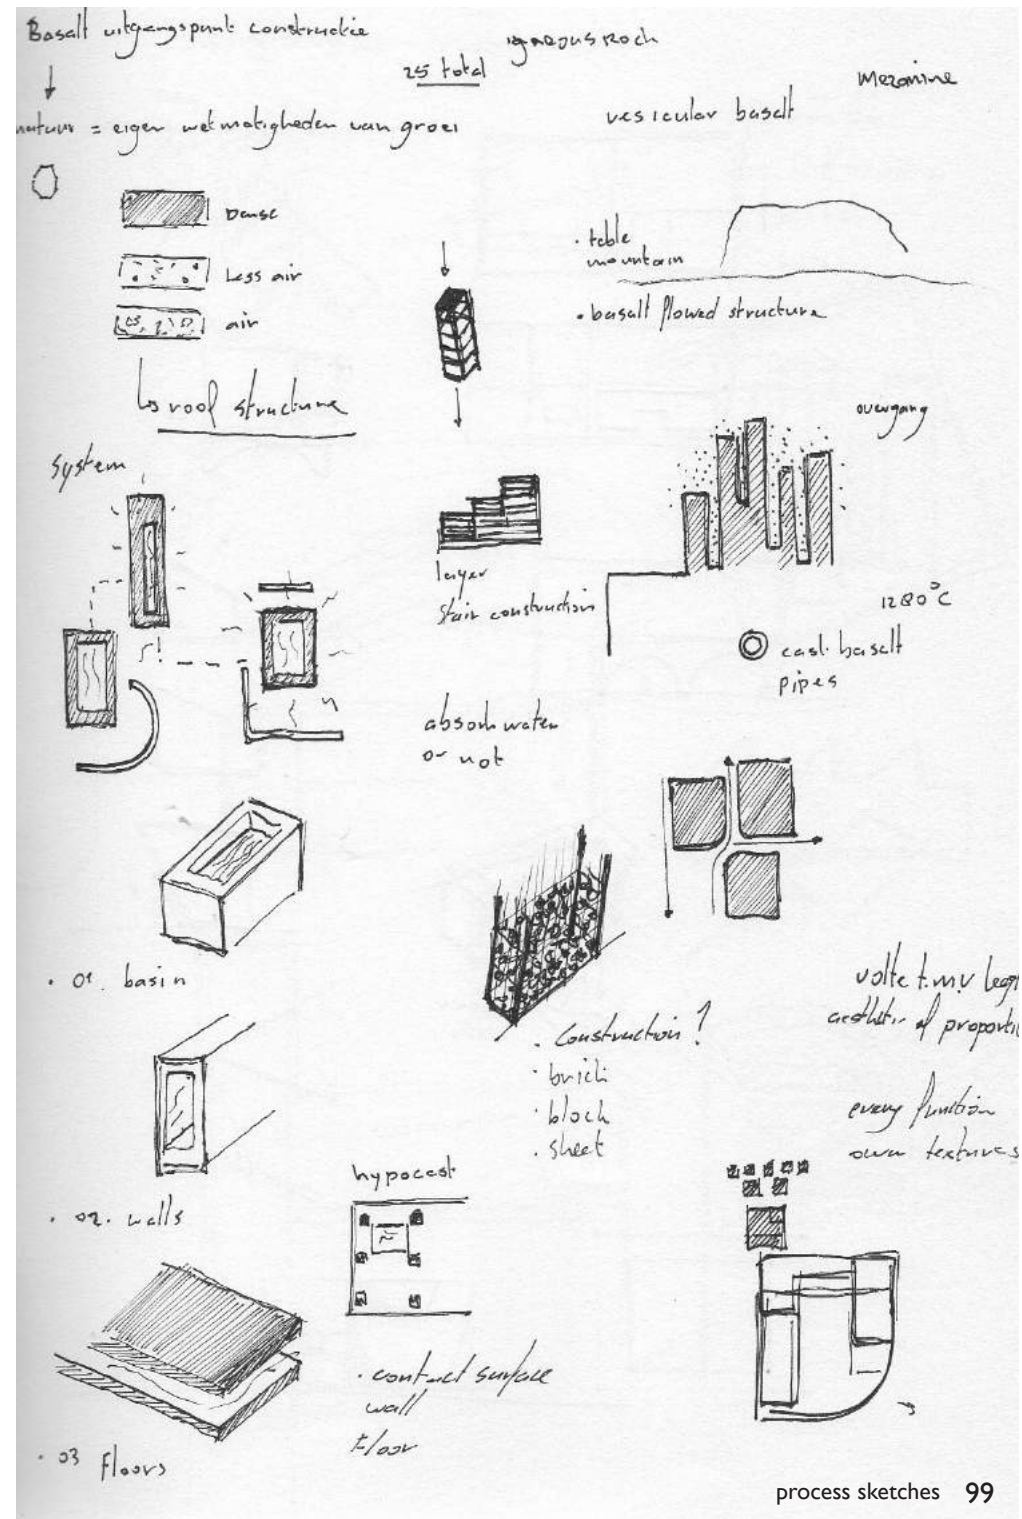 Basalt uitgangspunt constructie
igneous Rock
25 total
Mezanine
natuur = eigen wetmatigheden van groei
vesicular basalt
Dense
Less air
air
roof structure
· table
mountain
· basalt flowed structure
overgang
System
layer
stair construction
1280°C
cast basalt
pipes
absorb water
or not
· 01. basin
· Construction?
· brick
· block
· sheet
aesthetic of
every function
own textures
· 02. walls
hypocast
· contact surface
wall
Floor
· 03 Floors
process sketches 99